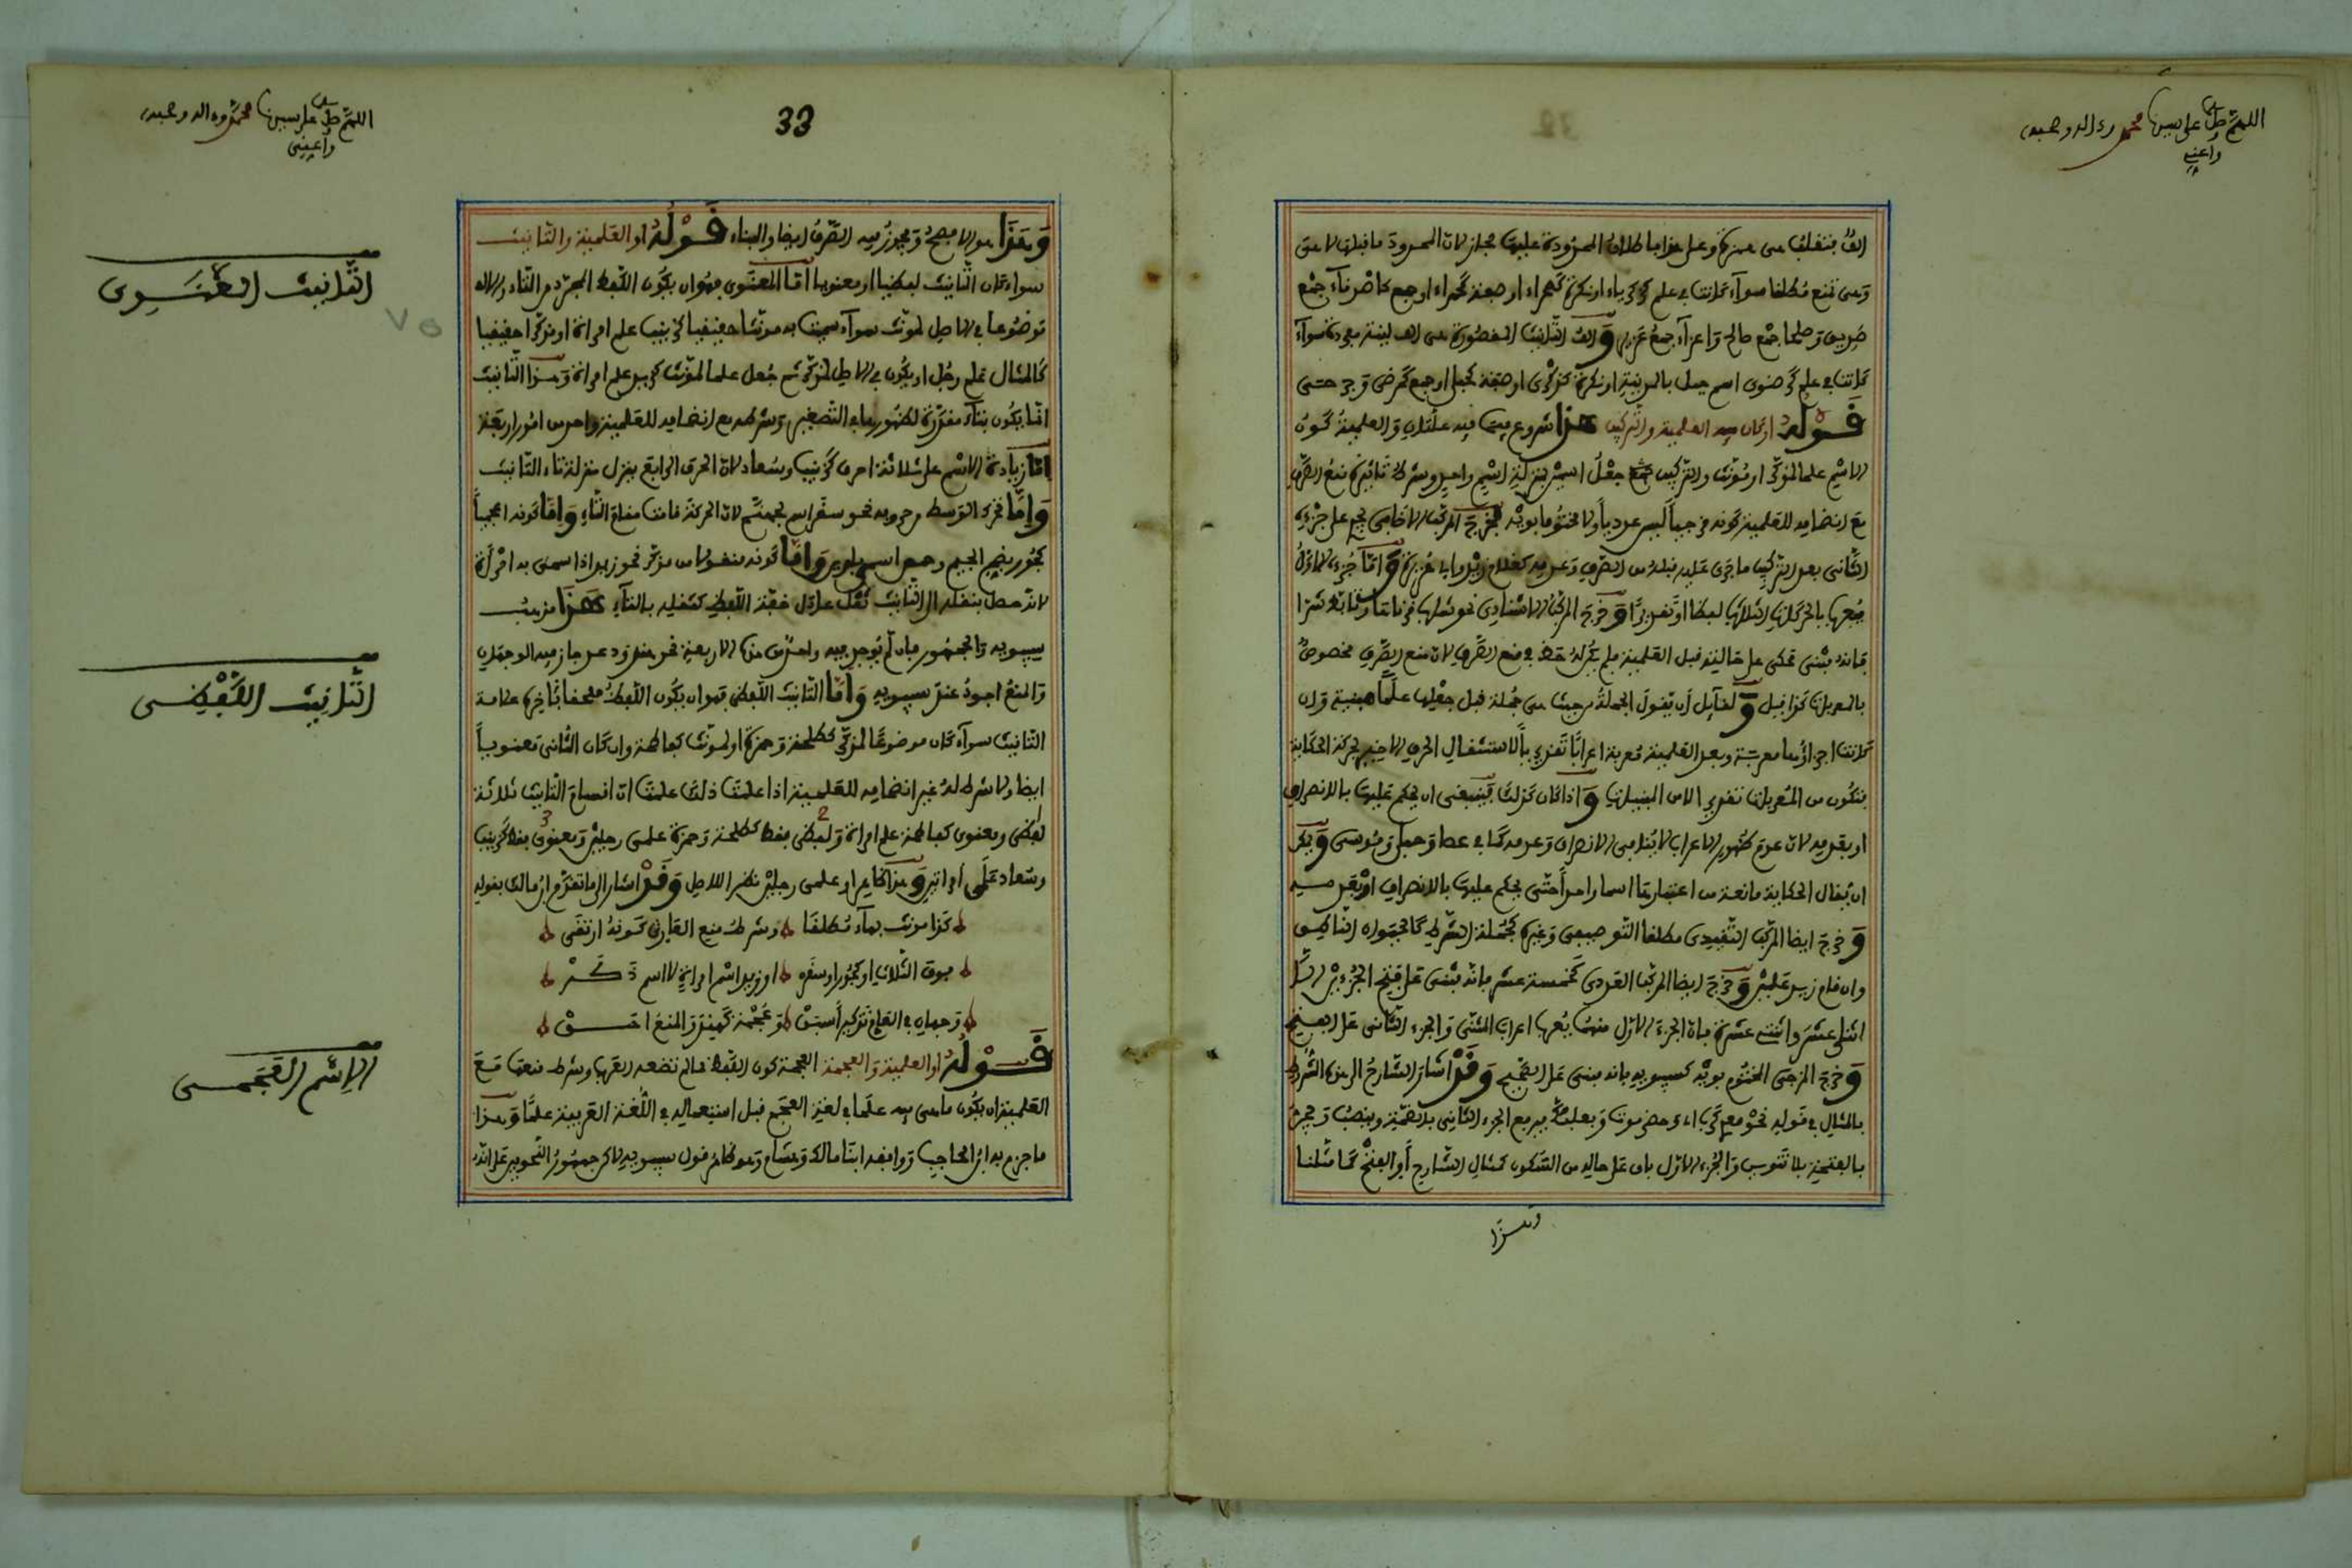 اللهم صل على سيدنا محمد وءاله وصحبه
وأعني
ألف فتقلب هي همزة وعلى هذا فإطلاق الممدودة عليها مجاز لأن الممدود ما قبلها لا هي
وهي تمنع مطلقا سوآء كانت في علم كزكرياء أو نكرة كصحراء أو صفة كحمراء أو جمع كأصدقآء جمع
صديق وصلحا جمع صالح وأعزآء جمع عزيز وألف التأنيث المقصورة هي ألف لينة مفردة سوآء
كانت في علم كرضوى اسم جبل بالمدينة أو نكرة كذكرى أو صفة كحبلى أو جمع كمرضى وجرحى
قوله أو كان فيه العلمية والتركيب هذا شروع فيما فيه علتان والعلمية كون
الاسم علما لمذكر أو مؤنث والتركيب جعل اسمين بمنزلة اسم واحد وشرط تأثيره منع الصرف
مع انضمامه للعلمية كونه مزجيا ليس عدديا ولا مختوما بويه فخرج المركب الإضافي فيجري على جزءه
الثاني بعد التركيب ما جرى عليه قبله من الصرف وعدمه كغلام زيد وأبي هريرة وأما جزءه الأول
فيعرب بالحركات الثلاث لفظا أو تقديرا وخرج المركب الإسنادي نحو شاب قرناها وتأبط شرا
فإنه مبني محكى على حالته قبل العلمية فلم يكن له حظ في منع الصرف لأن منع الصرف مخصوص
بالمعربات كذا قيل ولقآئل أن يقول الجملة من حيث هي جملة قبل جعلها علما مبنية وإن
كانت أجزاؤها معربة وبعد العلمية معربة إعرابا تقديريا لاشتغال الحرف الأخير بحركة الحكاية
فتكون من المعربات تقديرا لا من المبنيات وإذا كان كذلك فينبغي أن يحكم عليها بالانصراف
أو بعدمه لأن عدم ظهور الإعراب لا ينافي الانصراف وعدمه كما في عصا وحبلى وموسى ويمكن
أن يقال الحكاية مانعة من اعتبارها اسما واحدا حتى يحكم عليها بالانصراف أو بعدمه
وخرج أيضا المركب التقييدي مطلقا التوصيفي وغيره كجملة الشرط كالحيوان الناطق
وإن قام زيد علمين وخرج أيضا المركب العددي كخمسة عشر فإنه مبني على فتح الجزءين إلا
اثنى عشر واثنتي عشرة فإن الجزء الأول منهما يعرب إعراب المثنى والجزء الثاني على الفتح
وخرج المزجي المختوم بويه كسيبويه فإنه مبني على الفتح وقد أشار الشارح إلى هذا الشرط
بالمثال في قوله نحو معدي كرب أي وحضرموت وبعلبك فيرفع الجزء الثاني بالضمة وينصب ويجر
بالفتحة بلا تنوين والجزء الأول باق على حاله من السكون كمثال الشارح أو الفتح كما مثلنا
وهذا
33
اللهم صل على سيدنا محمد وءاله وصحبه
وأعني
وهذا هو الأفصح ويجوز فيه الصرف أيضا والبناء قوله أو العلمية والتأنيث
سواء كان التأنيث لفظيا أو معنويا أما المعنوي فهو أن يكون اللفظ المجرد من التاء والألف
موضوعا في الأصل لمؤنث سوآء سمي به مؤنثا حقيقيا كزينب علم امرأة أو مذكرا حقيقيا
كالمثال علم رجل أو يكون في الأصل لمذكر ثم جعل علما لمؤنث كزيد علم امرأة وهذا التأنيث
إنما يكون بتآء مقدرة لظهورها في التصغير وشرطه مع انضمامه للعلمية واحد من أمور أربعة
إما زيادة الاسم على ثلاثة أحرف كزينب وسعاد لأن الحرف الرابع ينزل منزلة تاء التأنيث
وإما تحرك الوسط من حروفه نحو سقر اسم لجهنم لأن الحركة قامت مقام التاء وإما كونه أعجميا
كجور بضم الجيم وحمص اسمي بلدين وإما كونه منقولا من مذكر نحو زيد إذا سمي به امرأة
لأنه حصل بنقله إلى التأنيث ثقل عادل خفة اللفظ كثقله بالتآء هذا مذهب
سيبويه والجمهور فإن لم يوجد فيه واحد من هذه الأربعة نحو هند ودعد جاز فيه الوجهان
والمنع أجود عند سيبويه وأما التأنيث اللفظي فهو أن يكون اللفظ ملحقا بآخره علامة
التأنيث سوآء كان موضوعا لمذكر كطلحة وحمزة أو لمؤنث كفاطمة وإن كان الثاني معنويا
أيضا ولا شرط له غير انضمامه للعلمية إذا علمت ذلك علمت أن أقسام التأنيث ثلاثة
لفظي ومعنوي كفاطمة علم امرأة ولفظي فقط كطلحة وحمزة علمي رجلين ومعنوي فقط كزينب
وسعاد علمي امرأتين وهذا كله علمي رجلين نظرا للأصل وقد أشار إلى ما تقدم ابن مالك بقوله
كذا مؤنث بهآء مطلقا وشرط منع العار كونه ارتقى
فوق الثلاث أو كجور أو سقر أو زيد اسم امرأة لا اسم ذكر
وجهان في العادم تذكيرا سبق وعجمة كهند والمنع أحق
قوله أو العلمية والعجمة العجمة كون اللفظ مما لم تضعه العرب وشرط منعها مع
العلمية أن يكون ما هي فيه علما في لغة العجم قبل استعماله في اللغة العربية علما وهذا
ما جزم به ابن الحاجب ووافقه ابنا مالك وهشام وهو ظاهر قول سيبويه لاكن جمهور النحويين على أنه
التأنيث المعنوي
التأنيث اللفظي
الاسم العجمي